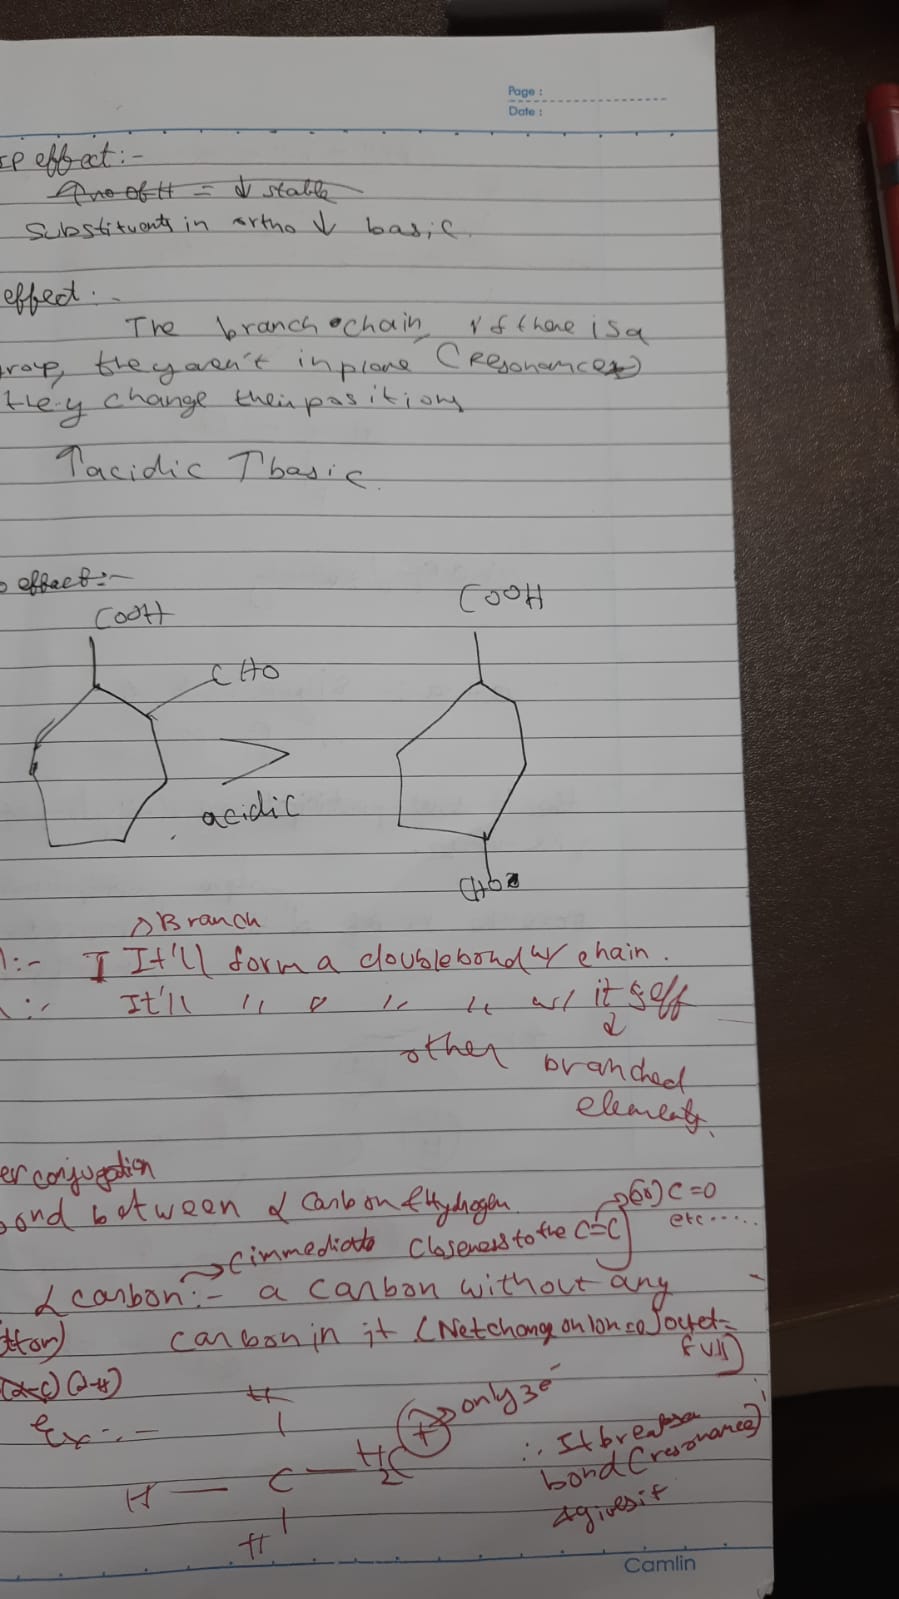 Page :
Date :
effect :-
no of H = ↓ stable
Substituents in ortho ↓ basic.
effect :-
The branch chain, if there is a
group, they aren't in plane (Resonance)
they change their positions
↑acidic ↑basic.
effect :-
COOH
COOH
CHO
>
acidic
CHO
Branch
:- I It'll form a double bond w/ chain.
:- It'll " " " " w/ itself
other branched
elements.
er conjugation
ond between α carbon & Hydrogen.
(or) C=O
etc.....
(immediate closeness to the C=C)
α carbon :- a carbon without any
carbon in it (Net change on ion = 0 octet =
full)
(α-C) (α-H)
Ex :-
H
only 3e⁻
H — C — H₂C +
H
∴ It breaks a
bond (resonance)
& gives it
Camlin